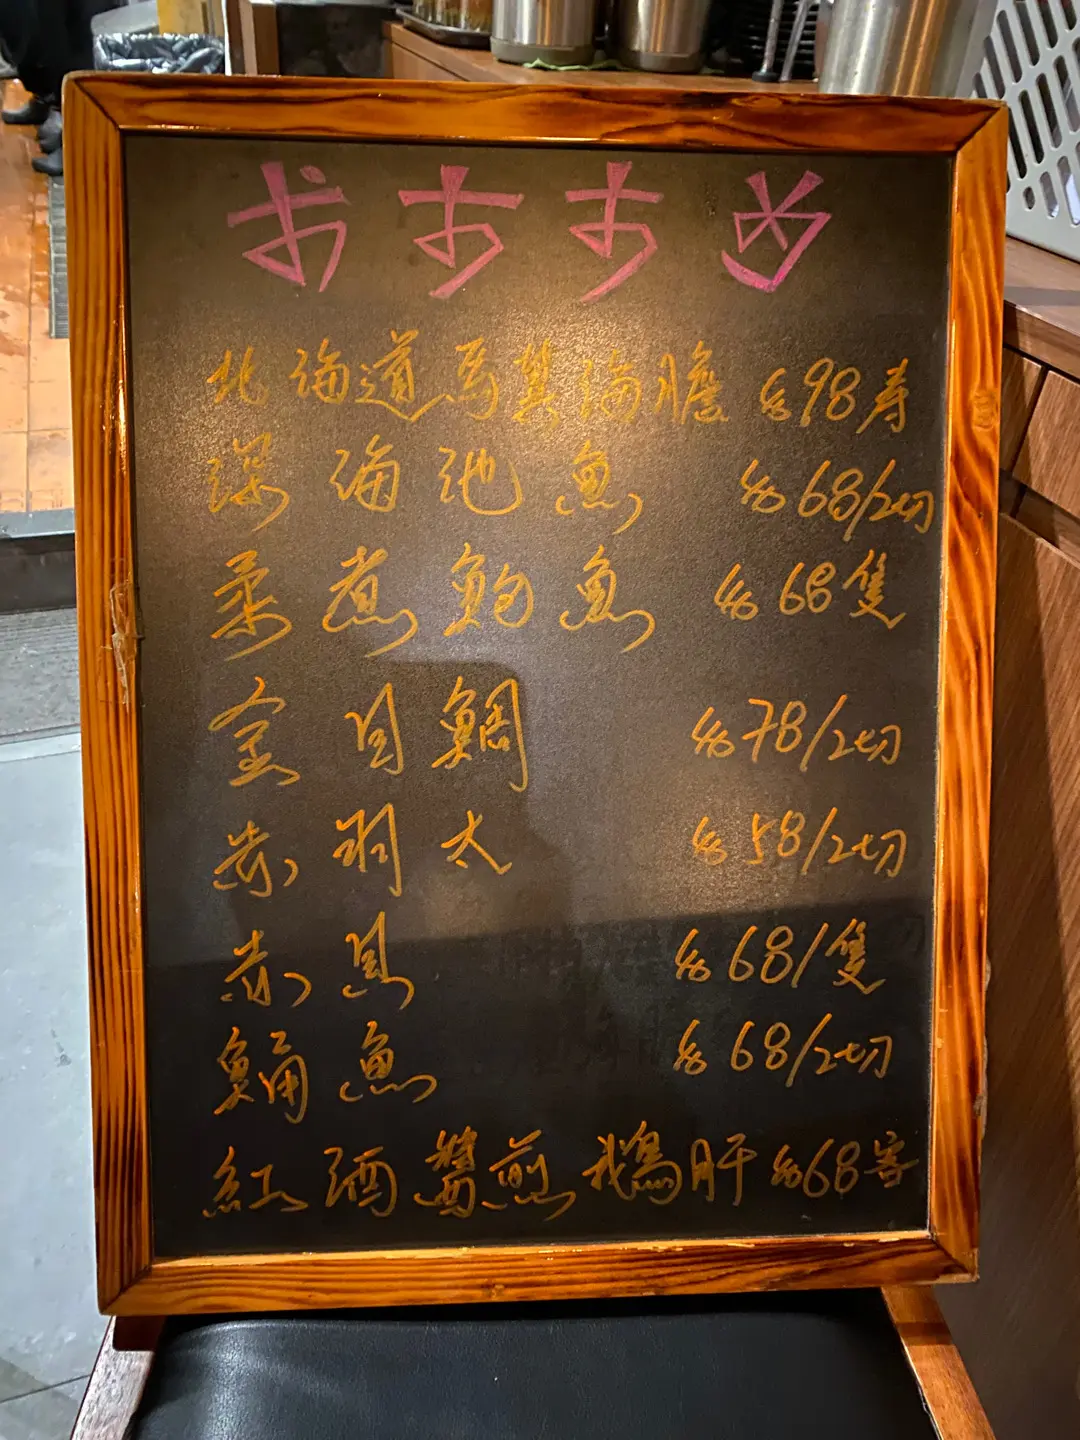 おすすめ
北海道馬糞海膽 $98寿
深海池魚 $68/2切
柔煮鮑魚 $68隻
金目鯛 $78/2切
赤羽太 $58/2切
赤貝 $68/隻
鯒魚 $68/2切
紅酒醬煎鵝肝 $68客